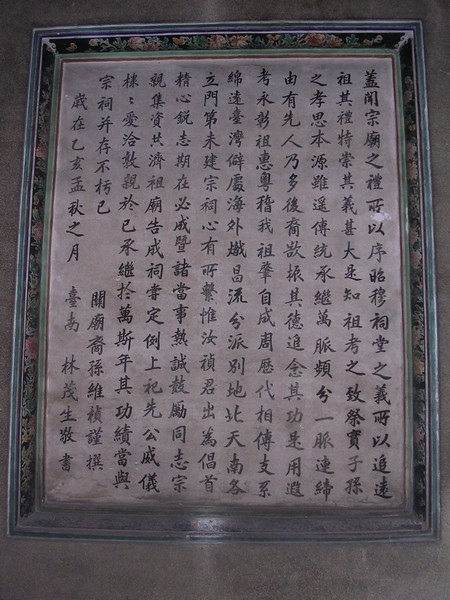 蓋聞宗廟之禮所以序昭穆祠堂之義所以追遠
祖其禮特崇其義甚大是知祖考之致祭實子孫
之孝思本源雖遥傳統承繼萬脈頻分一脈連締
由有先人乃多後裔欲振其德追念其功是用遐
考永彰祖惠粵稽我祖肇自成周歷代相傳支系
綿遠臺灣僻處海外熾昌流分派別地北天南各
立門第未建宗祠心有所繫惟汝禎君出為倡首
精心銳志期在必成暨諸當事熱誠鼓勵同志宗
親集資共濟祖廟告成祠甞定例上祀先公威儀
棣々愛洽敦親於已承繼於萬斯年其功績當與
宗祠并存不朽已
歲在乙亥孟秋之月
關廟裔孫維楨謹撰
臺南 林茂生敬書